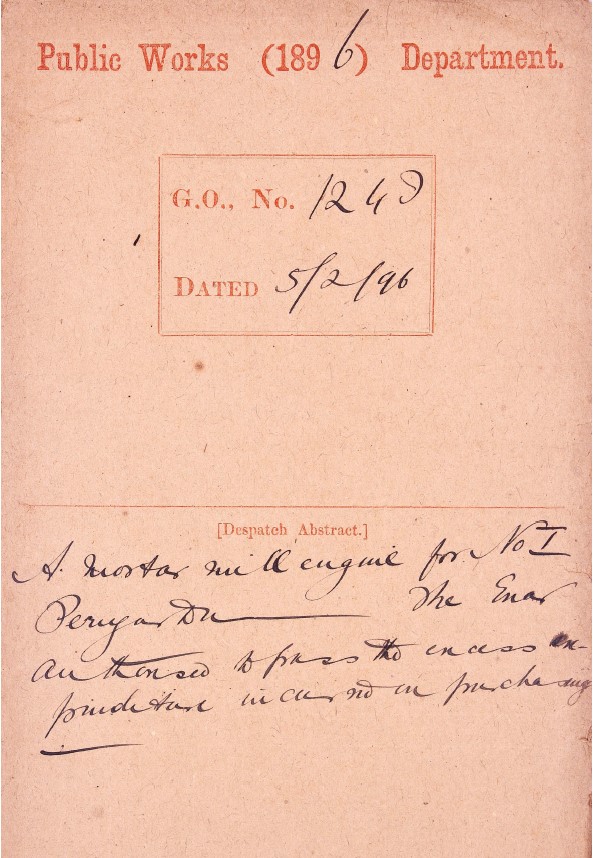 Public Works (1896) Department.
G.O., No. 124 D
DATED 5/2/96
[Despatch Abstract.]
A mortar mill engine for No I
Periyar Dn The Exar
authorised to pass the excess ex-
penditure incurred in purchasing